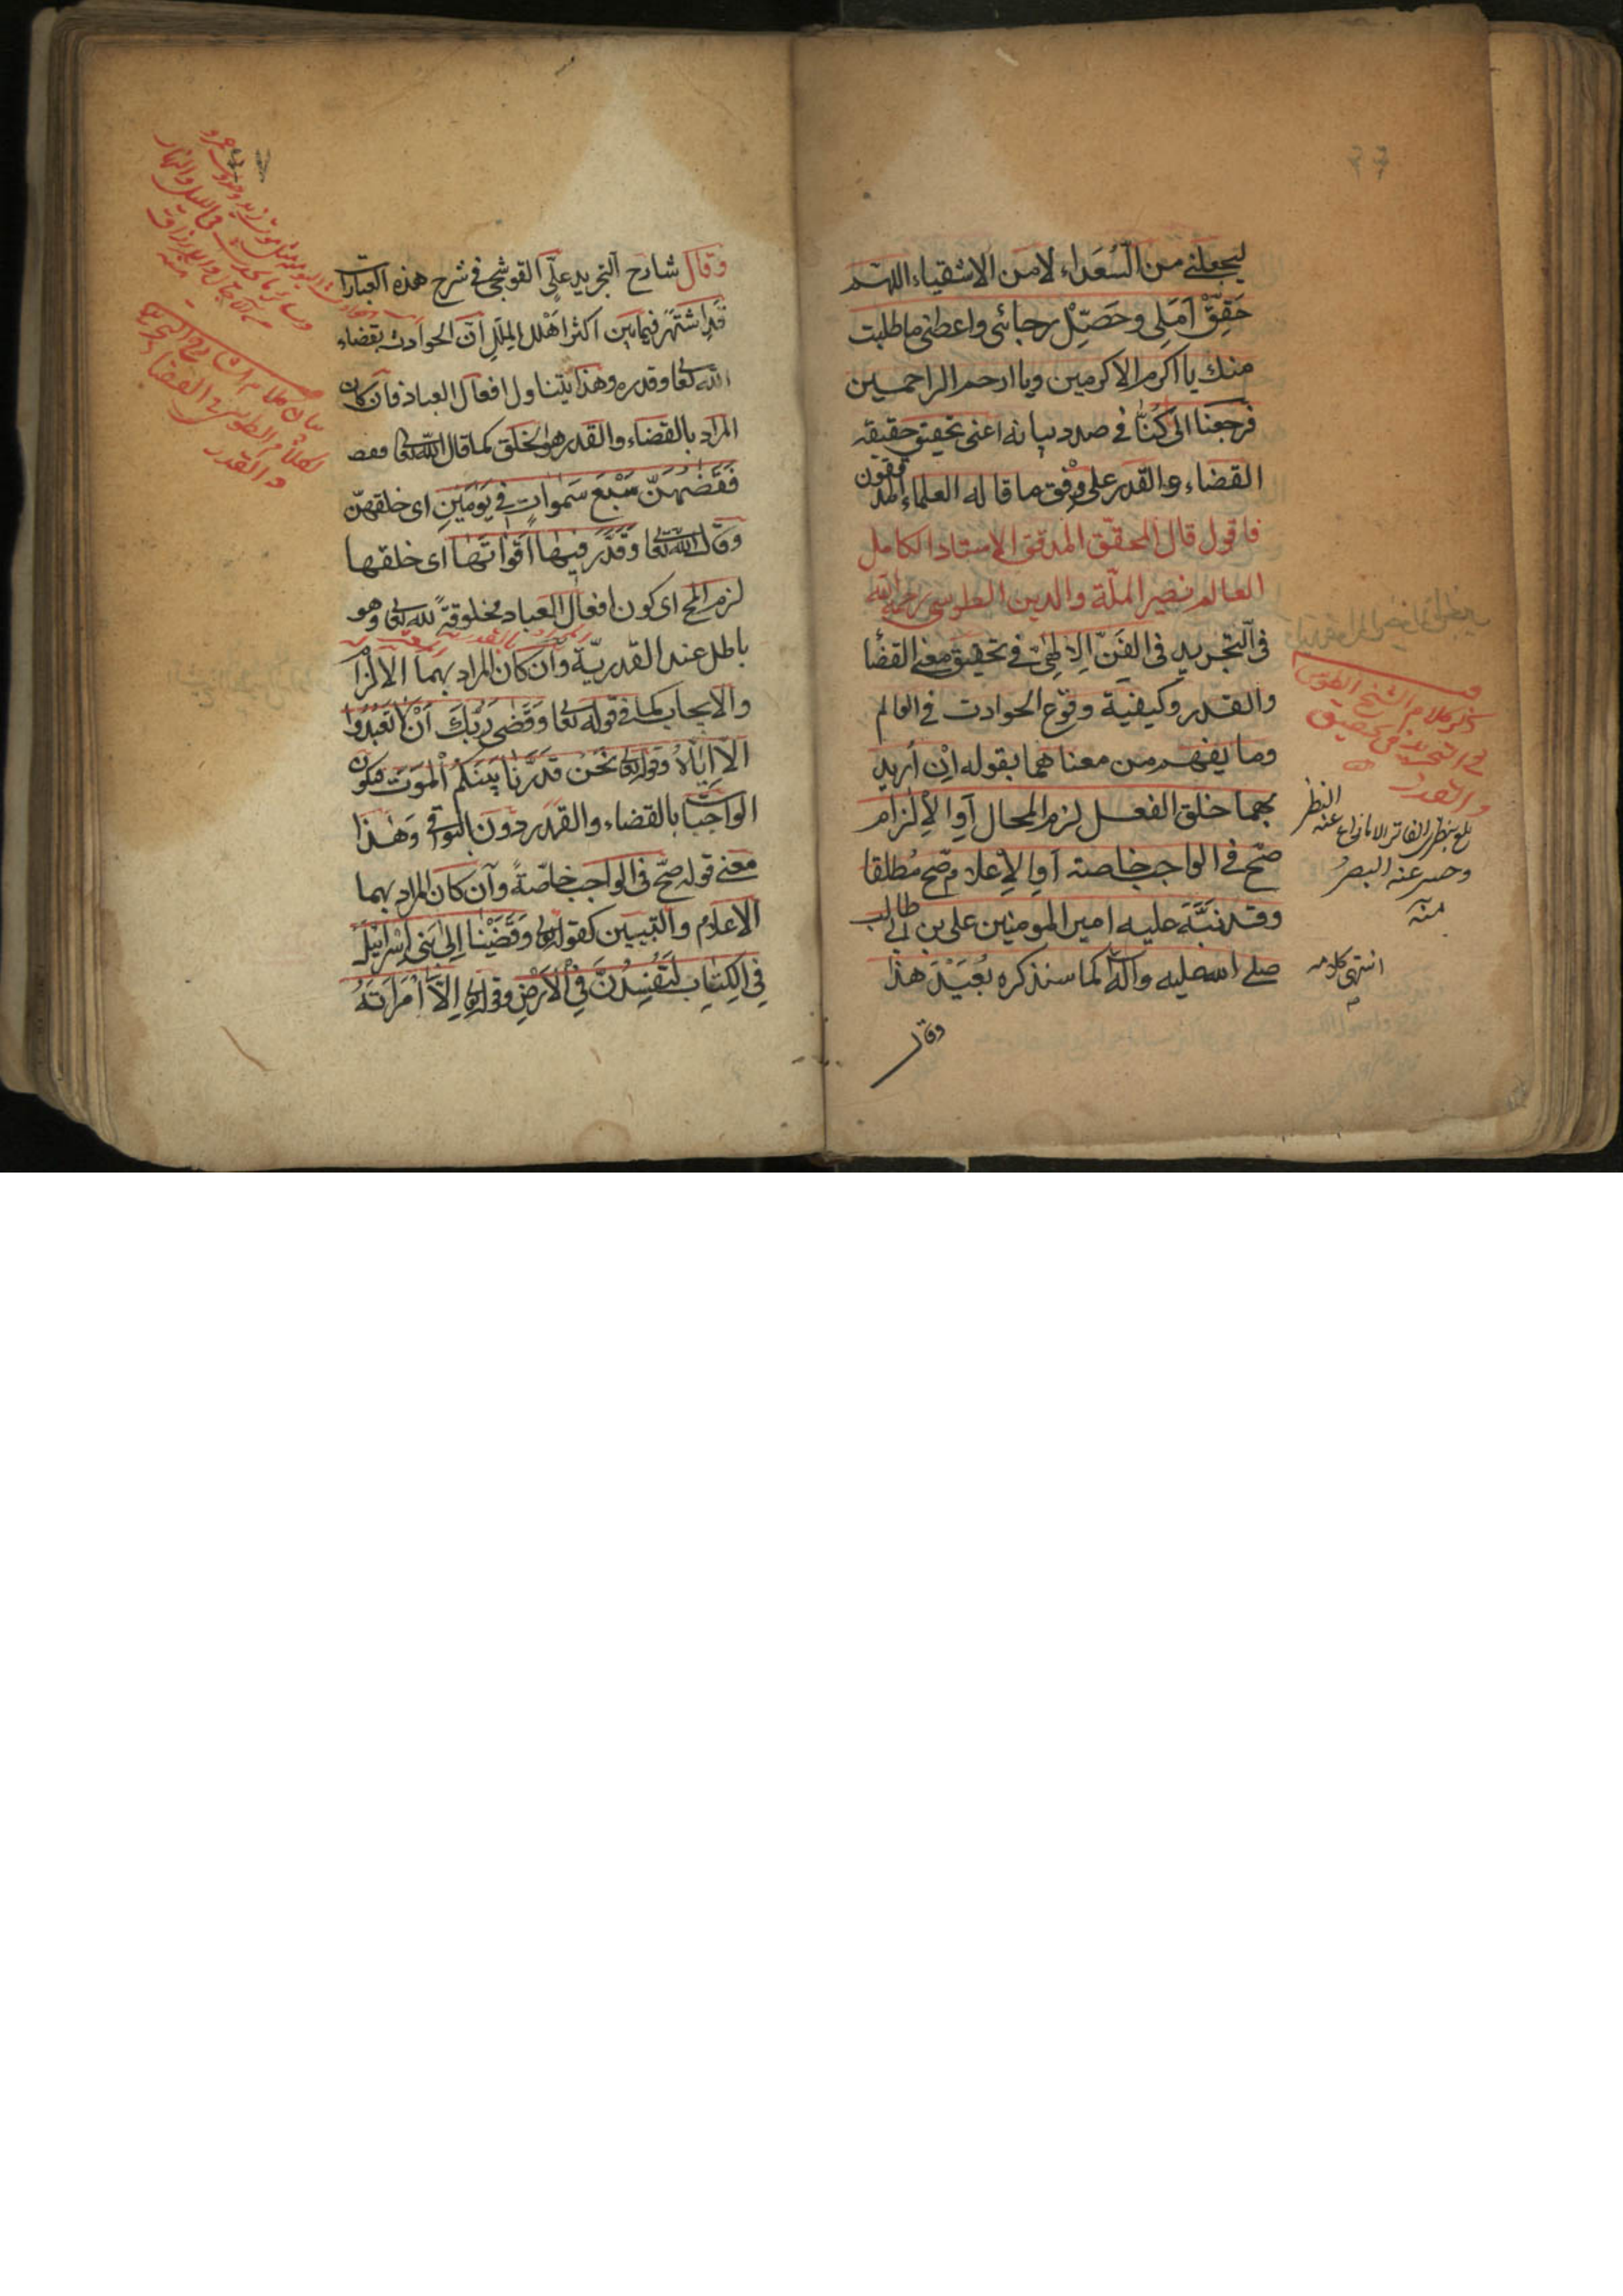 ليجعلني من السُعَداء لا من الاشقياء اللهم
حَقِّقْ اَمَلِى وحَصِّلْ رجائى واعطنى ما طلبت
منك يا اكرم الاكرمين ويا ارحم الراحمين
فرجعنا الى كُنّا فى صدد بيانه اعنى تحقيق حقيقة
القضاء والقدر على وفق ما قاله العلماء المدققون
فاقول قال المحقق المدقق الاستاد الكامل
العالم نصير الملّة والدين الطوسى رحمه الله
فى التجريد فى الفَنّ الالٰهىّ فى تحقيق معنى القضا
والقدر وكيفية وقوع الحوادث فى العالم
وما يفهم من معناهما بقوله اِنْ اُريد
بهما خلق الفعل لزم المحال اَوِ الاِلزام
صحّ فى الواجب خاصة اَوِ الاِعلام صحّ مُطلقا
وقد نبَّهَ عليه امير المومنين على بن ابى طالب
صلى الله عليه وآله كما سنذكره بُعَيْدَ هذا
وقال
ذكر كلام الشيخ الطوسى
فى التجريد فى تحقيق
والقدر
النظر
وحسر عنه البصرُ
منه
انتهى كلامه
وقال شارح التجريد على القوشجى فى شرح هذه العبارات
قد اشتهر فيما بين اكثر اهل المِلَلِ انّ الحوادث بقضاء
الله تعا وقدره وهذا يتناول افعال العباد فان كان
المراد بالقضاء والقدر هو الخلق كما قال الله تعا
فَقَضٰهُنّ سَبْعَ سَمٰواتٍ فِى يَوْمَيْنِ اى خلقهنّ
وقال الله تعا وَقَدَّرَ فِيهَا اَقْوَاتَهَا اى خلقها
لزم المح اى كون افعال العباد مخلوقةً لله تعا وهو
باطل عند القدريّة وان كان المراد بهما الالزام
والايجاب كما فى قوله تعا وَقَضٰى رَبُّكَ اَنْ لاَ تَعْبُدُوا
اِلاّ اِيّاهُ وقوله تعا نَحْنُ قَدَّرْنَا بَيْنَكُمُ الْمَوْتَ فيكون
الواجبات بالقضاء والقدر دون البواقى وَهٰذا
معنى قوله صحّ فى الواجب خاصّةً وان كان المراد بهما
الاعلام والتبيين كقوله تعا وَقَضَيْنَا اِلٰى بَنِى اِسْرائِيلَ
فِى الْكِتابِ لَتُفْسِدُنَّ فِى الْاَرْضِ وقوله تعا اِلاَّ امْرَاَتَهُ
بيان كلام
لكلام الطوسى فى القضاء
والقدر